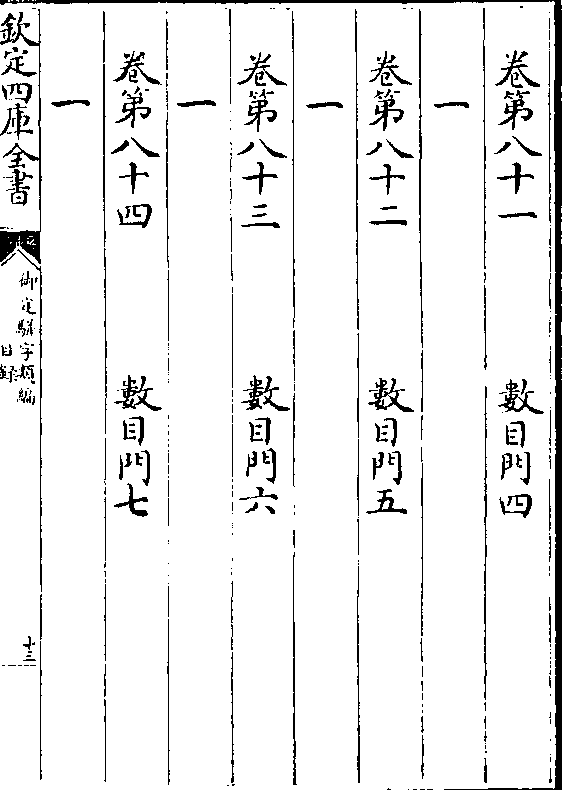 卷第八十一 數目門四
一
卷第八十二 數目門五
一
卷第八十三 數目門六
一
卷第八十四 數目門七
一
欽定四庫全書
御定駢字類編
目錄
十三